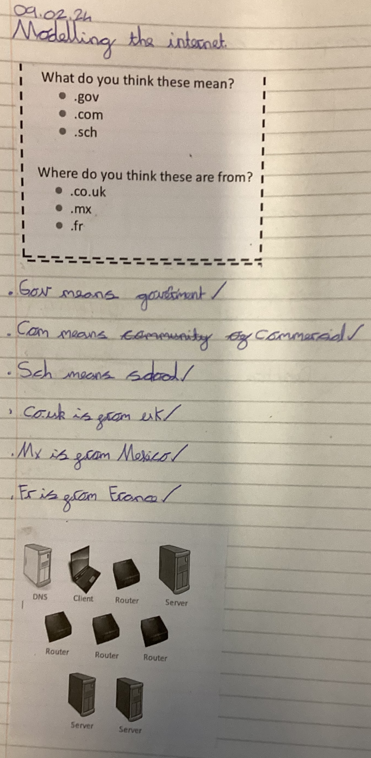 09.02.24
Modelling the internet.
What do you think these mean?
• .gov
• .com
• .sch
Where do you think these are from?
• .co.uk
• .mx
• .fr
. Gov means goverment /
. Com means community or Commercial /
. Sch means school /
. Co.uk is from uk /
. Mx is from Mexico /
. Fr is from France /
DNS Client Router Server
Router Router Router
Server Server